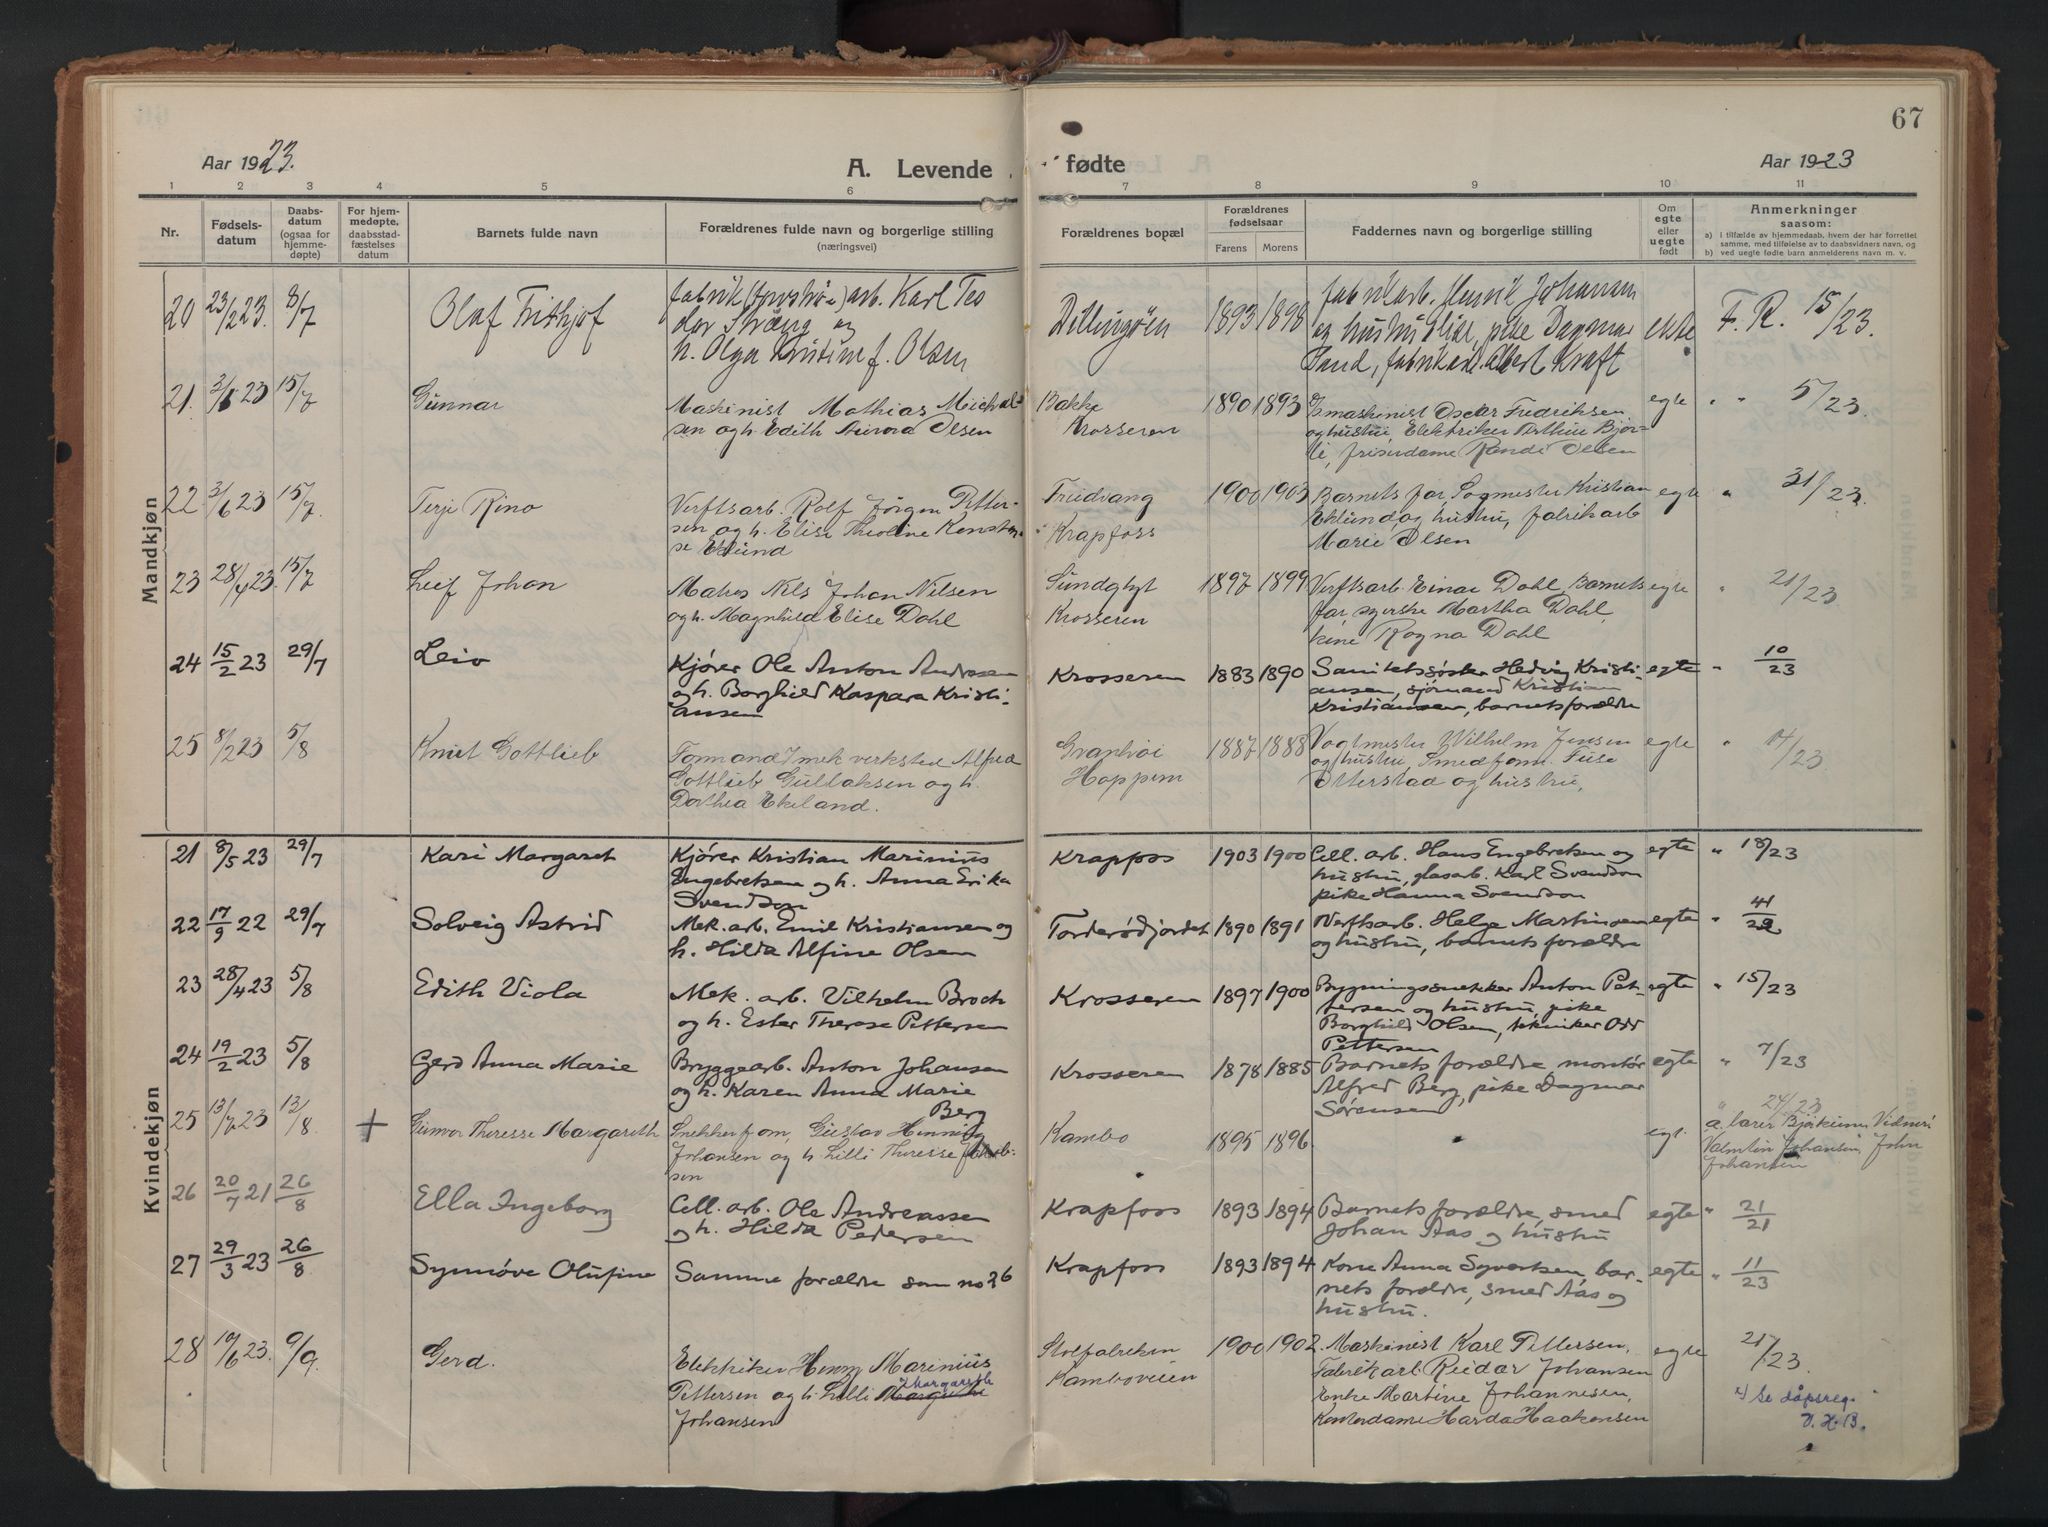 67
Aar 1923.
A. Levende
fødte
Aar 1923
1 2 3 4 5 6 7 8 9 10 11
Nr.
Fødselsdatum
Daabsdatum (ogsaa for hjemmedøpte)
For hjemmedøpte, daabsstadfæstelses datum
Barnets fulde navn
Forældrenes fulde navn og borgerlige stilling (næringsvei)
Forældrenes bopæl
Forældrenes fødselsaar
Farens Morens
Faddernes navn og borgerlige stilling
Om egte eller uegte født
Anmerkninger saasom:
a) I tilfælde av hjemmedaab, hvem der har forrettet samme, med tilføielse av to daabsvidners navn, og
b) ved uegte fødte barn anmelderens navn m. v.
Mandkjøn
20 23/2 23. 8/7 Olaf Frithjof
fabrik arb. Karl Teo
dor Stræng og
h. Olga Kristine f. Olsen
1893 1898
fabrikarb. Henrik Johansen
og hushu, pike Dagmar
ekte F. R. 15/23.
21. 15/7 Gunnar
Maskinist Mathias Michal-
sen og h. Edith Aurora Olsen
Bakke
Krosseren
1890 1893
Ismaskinist Oscar Fredriksen
og hustru, Elektriker Arthur Bjør-
li, friserdame Randi Olsen
egte " " 5/23.
22. 3/6 23 15/7. Terje Rino
Verftsarb. Rolf Jørgen Petter-
sen og h. Elise Theoline
se Eklund
Fredvang
Krapfoss
1900 1903
Barnets far, Sagmester Kristian
Eklund og hustru, fabrikarb
Marie Olsen
egte " 31/23.
23 28/4 23. 15/7 Leif Johan
Matros Nils Johan Nilsen
og h. Magnhild Elise Dahl
Sundgt
Krosseren
1897 1899
Verftsarb. Einar Dahl, Barnets
far, syerske Martha Dahl,
Ragna Dahl
egte " 21/23
24 15/2 23 29/7 Leiv
Kjører Ole Anton Andresen
og h. Borghild Kaspara Kristi-
ansen
Krosseren 1883 1890
Sanitetssøster Hedvig Kristi-
ansen, sjømand Kristian
Kristiansen, barnets forældre
egte " 10/23
25 8/2 23 5/8 Knut Gottlieb
Formand i mek verksted Alfred
Gottlieb Gullaksen og h.
Dorthea Ekeland.
Granhøi
Hoppern
1887 1888
Vogtmester Wilhelm Jensen
og hustru, Smedform.
Otterstad og hustru,
egte " 14/23
Kvindekjøn
21 8/5 23 29/7 Kari Margaret
Kjører Kristian Marinius
Engebretsen og h. Anna Erika
Svendson
Krapfoss 1903 1900
Cell. arb. Hans Engebretsen og
hustru, glasarb. Karl Svendson
pike Hanna Svendson
egte " 18/23
22 17/9 22 29/7 Solveig Astrid
Mek. arb. Emil Kristiansen og
h. Hilda Alfine Olsen
Torderødjordet 1890 1891
Verftsarb. Helge Martinsen
og hustru, barnets forældre
egte " 41/22
23 28/4 23 5/8 Edith Viola
Mek. arb. Vilhelm Broch
og h. Ester Therese Pettersen
Krosseren 1897 1900
Bygningssnekker Anton Pet-
tersen og hustru, pike
Borghild Olsen, tekniker Odd
Pettersen
egte " 15/23
24 19/2 23 5/8 Gerd Anna Marie
Bryggearb. Anton Johansen
og h. Karen Anna Marie
Berg
Krosseren 1878 1885
Barnets forældre, montør
Alfred Berg, pike Dagmar
Sørensen
egte " 7/23
25 12/8. + Gunvor Therese Margareth
Snekkerform, Gustav Henning
Johansen og h. Lilli Therese
sen
Kambo 1895 1896
egt.
" 24/23
a. lærer Bjørkum, Vidner:
Valentin Johansen, John
Johansen
26 20/7 21 26/8 Ella Ingeborg
Cell. arb. Ole Andreassen
og h. Hilda Pedersen
Krapfoss 1893 1894
Barnets forældre, smed
Johan Aas og hustru
egte " 21/21
27 29/3 23 26/8 Synnøve Olufine
Samme forældre som no 26
Krapfoss 1893 1894
Kone Anna Syvertsen, bar-
nets forældre, smed Aas og
hustru.
egte " 11/23
28 19/6 23. 9/9. Gerd.
Elektriker Henry Marinius
Pettersen og h. Lilli Margarethe
Johansen
Stolfabriken
Kamboveien
1900 1902.
Maskinist Karl Pettersen,
Fabrikarb. Reidar Johansen
Enke Martine Johannesen,
Kontordame Harda Haakensen
egte 25/23.
x) Se dåpsreg.
V. H. B.